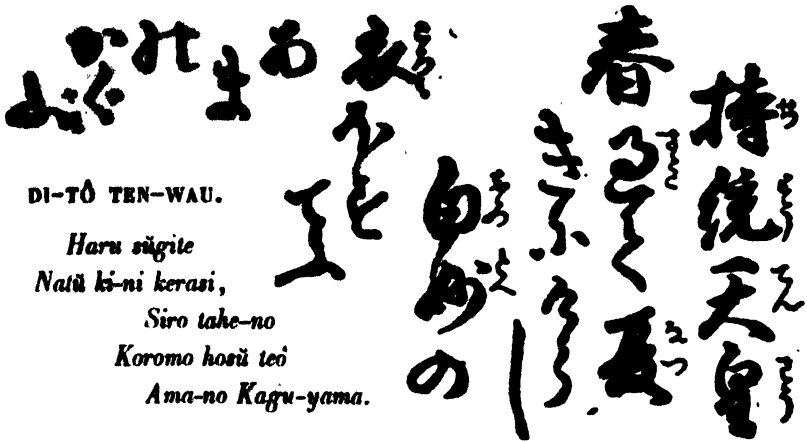 持統天皇
春過て夏
きにけらし
白妙の
衣ほす
てふ
あまの
かぐ
山
DI-TÔ TEN-WAU.
Haru sŭgite
Natŭ ki-ni kerasi,
Siro tahe-no
Koromo hosŭ teô
Ama-no Kagu-yama.